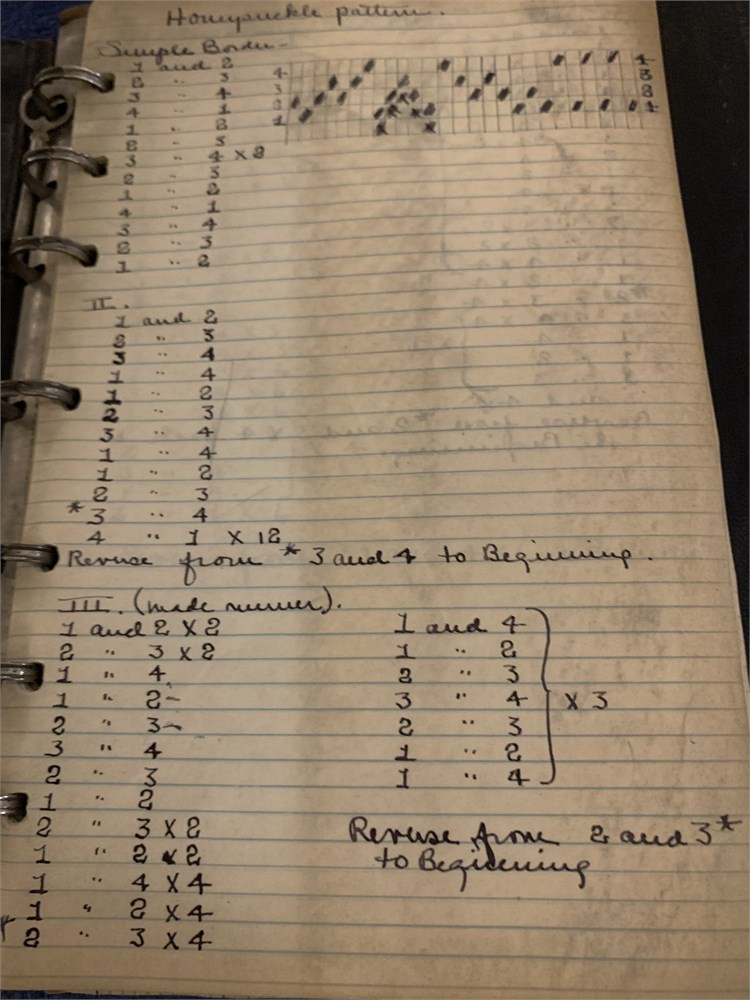 Honeysuckle pattern.
Simple Border-
1 and 2
2 " 3
3 " 4
4 " 1
1 " 2
2 " 3
3 " 4 x 2
2 " 3
1 " 2
4 " 1
3 " 4
2 " 3
1 " 2
4
3
2
1
4
3
2
1
II.
1 and 2
2 " 3
3 " 4
1 " 4
1 " 2
2 " 3
3 " 4
1 " 4
1 " 2
2 " 3
* 3 " 4
4 " 1 x 12
Reverse from * 3 and 4 to Beginning.
III. (made runner).
1 and 2 x 2
2 " 3 x 2
1 " 4
1 " 2-
2 " 3-
3 " 4
2 " 3
1 " 2
2 " 3 x 2
1 " 2 x 2
1 " 4 x 4
1 " 2 x 4
* 2 " 3 x 4
1 and 4
1 " 2
2 " 3
3 " 4
2 " 3
1 " 2
1 " 4
x 3
Reverse from 2 and 3*
to Beginning